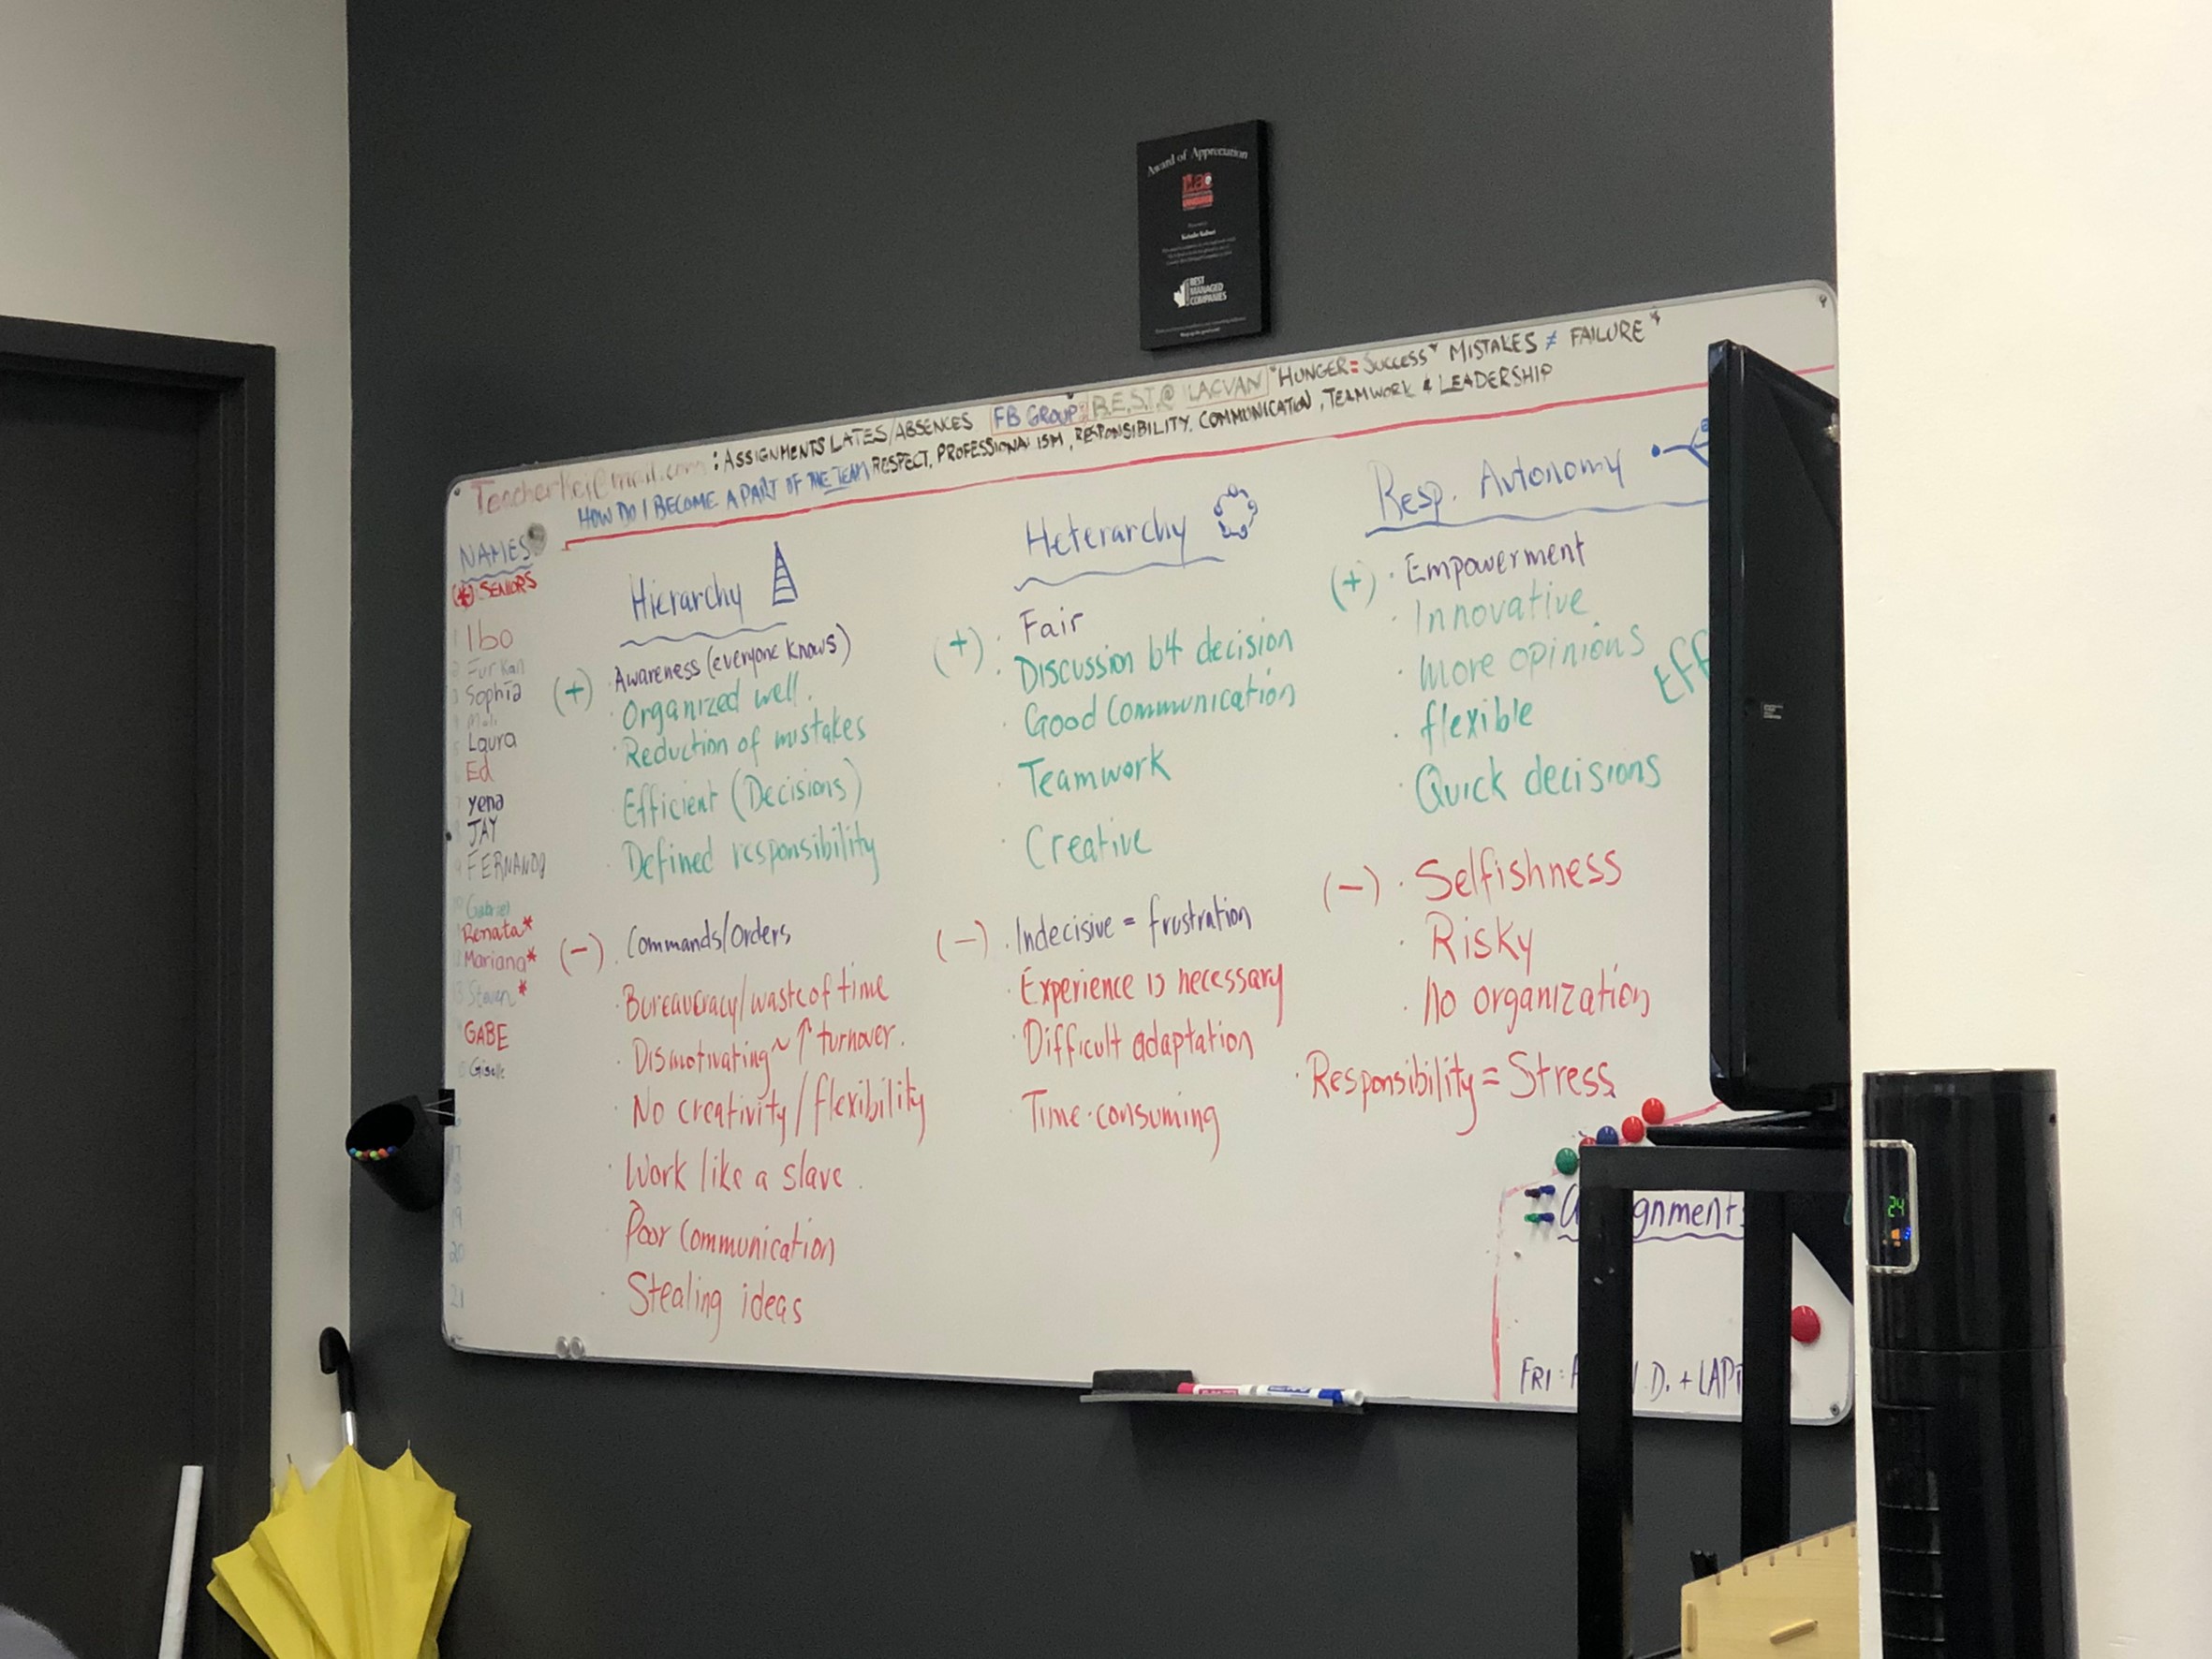 Award of Appreciation
ilac
BEST
MANAGED
COMPANIES
: ASSIGNMENTS LATES/ABSENCES FB GROUP: B.E.S.T.@ ILACVAN *HUNGER = SUCCESS* MISTAKES ≠ FAILURE*
HOW DO I BECOME A PART OF THE TEAM RESPECT, PROFESSIONALISM, RESPONSIBILITY, COMMUNICATION, TEAMWORK & LEADERSHIP
NAMES
(*) SENIORS
1 Ibo
2 Furkan
3 Sophia
4
5 Laura
6 Ed
7 yena
8 JAY
9 FERNANDO
10 Gabriel
11 Renata*
12 Mariana*
13 Steven*
GABE
Giselle
17
18
19
20
21
Hierarchy
(+) · Awareness (everyone knows)
· Organized well.
· Reduction of mistakes
· Efficient (Decisions)
· Defined responsibility
(-) · Commands/Orders
· Bureaucracy/waste of time
· Dismotivating ~ ↑ turnover.
· No creativity/flexibility
· Work like a slave.
· Poor communication
· Stealing ideas
Heterarchy
(+) · Fair
· Discussion b4 decision
· Good Communication
· Teamwork
· Creative
(-) · Indecisive = frustration
· Experience is necessary
· Difficult adaptation
· Time-consuming
Resp. Autonomy
(+) · Empowerment
· Innovative
· More opinions
· flexible
· Quick decisions
Eff
(-) · Selfishness
· Risky
· No organization
· Responsibility = Stress
gnments
FRI: D. + LAP
24